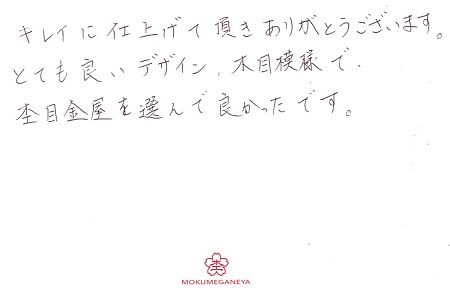 キレイに仕上げて頂きありがとうございます。
とても良いデザイン、木目模様で、
杢目金屋を選んで良かったです。
杢
MOKUMEGANEYA